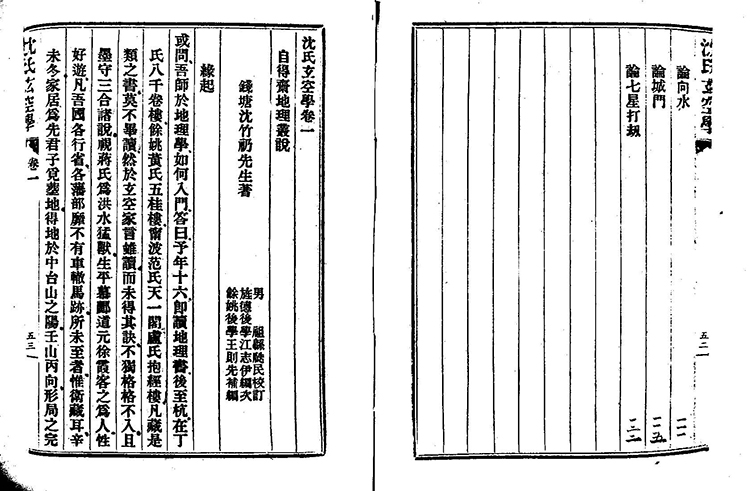 沈氏玄空學
論向水
論城門
論七星打刼
五二
沈氏玄空學卷一
自得齋地理叢說
錢塘沈竹礽先生著
男 祖緜瓞民校訂
旌德後學江志伊編次
餘姚後學王則先補編
緣起
或問吾師於地理學如何入門答曰予年十六卽讀地理書後至杭在丁
氏八千卷樓餘姚黃氏五桂樓甯波范氏天一閣盧氏抱經樓凡藏是
類之書莫不畢讀然於玄空家言雖讀而未得其訣不獨格格不入且
墨守三合諸說視蔣氏爲洪水猛獸生平慕酈道元徐霞客之爲人性
好遊凡吾國各行省各藩部靡不有車轍馬跡所未至者惟衛藏耳辛
未冬家居爲先君子覓墓地得地於中台山之陽壬山丙向形局之完
沈氏玄空學
卷一
五三